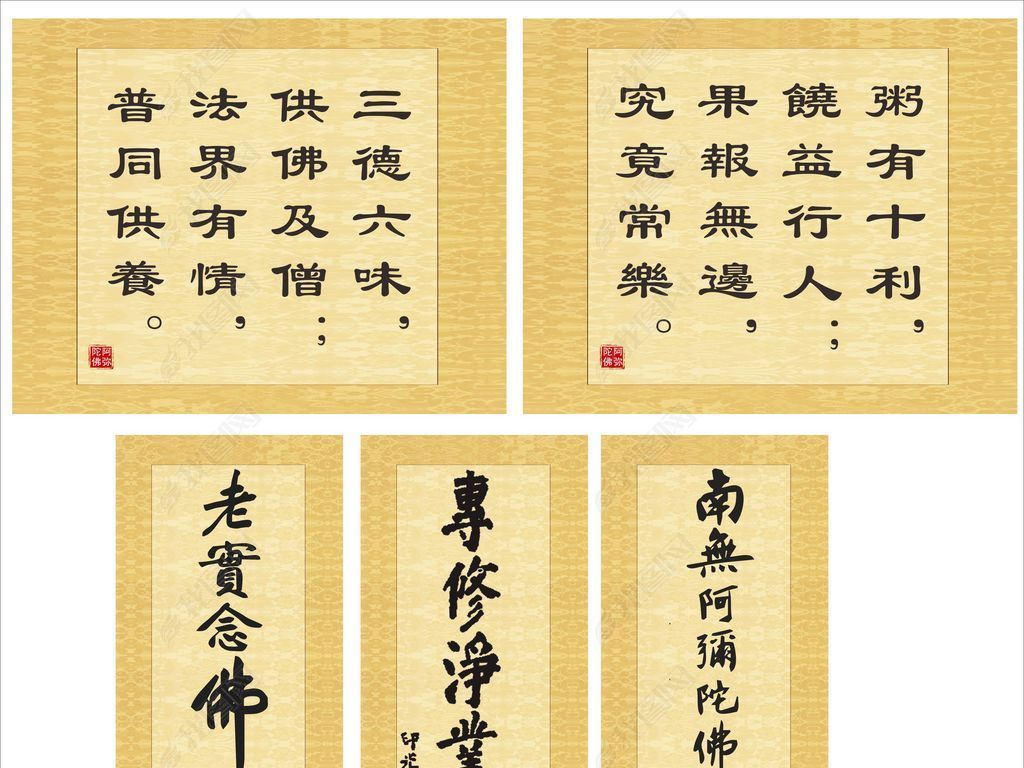 三德六味，
供佛及僧；
法界有情，
普同供養。
阿弥
陀佛
粥有十利，
饒益行人；
果報無邊，
究竟常樂。
阿弥
陀佛
老實念佛
專修淨業
印光
南無阿彌陀佛